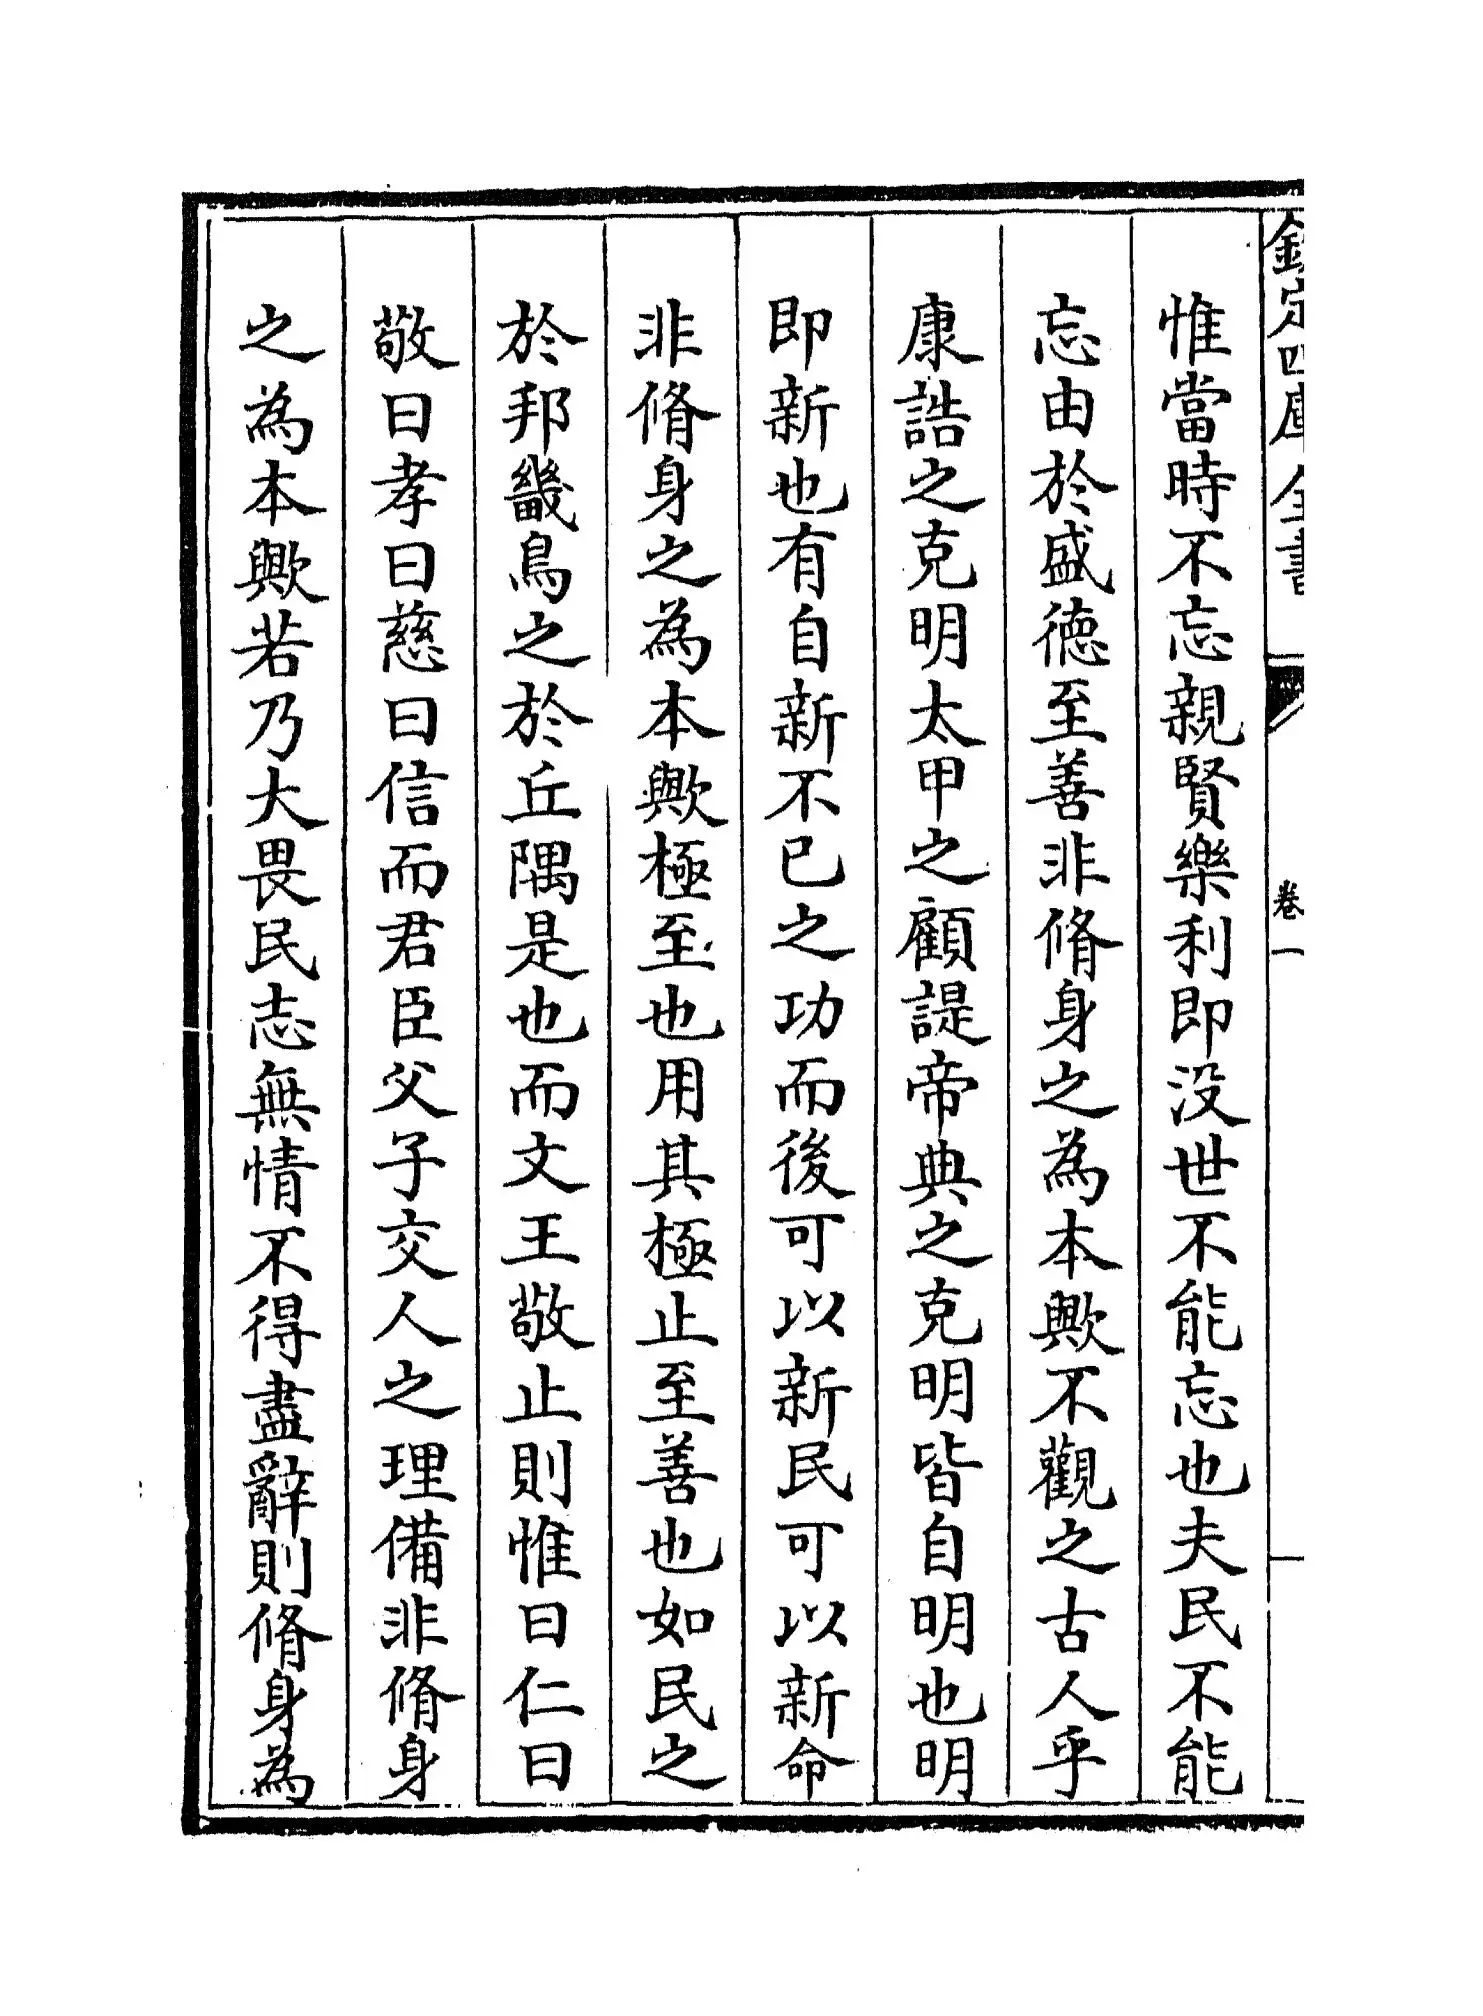 欽定四庫全書
卷一
惟當時不忘親賢樂利即没世不能忘也夫民不能
忘由於盛德至善非脩身之為本歟不觀之古人乎
康誥之克明太甲之顧諟帝典之克明皆自明也明
即新也有自新不已之功而後可以新民可以新命
非脩身之為本歟極至也用其極止至善也如民之
於邦畿鳥之於丘隅是也而文王敬止則惟曰仁曰
敬曰孝曰慈曰信而君臣父子交人之理備非脩身
之為本歟若乃大畏民志無情不得盡辭則脩身為